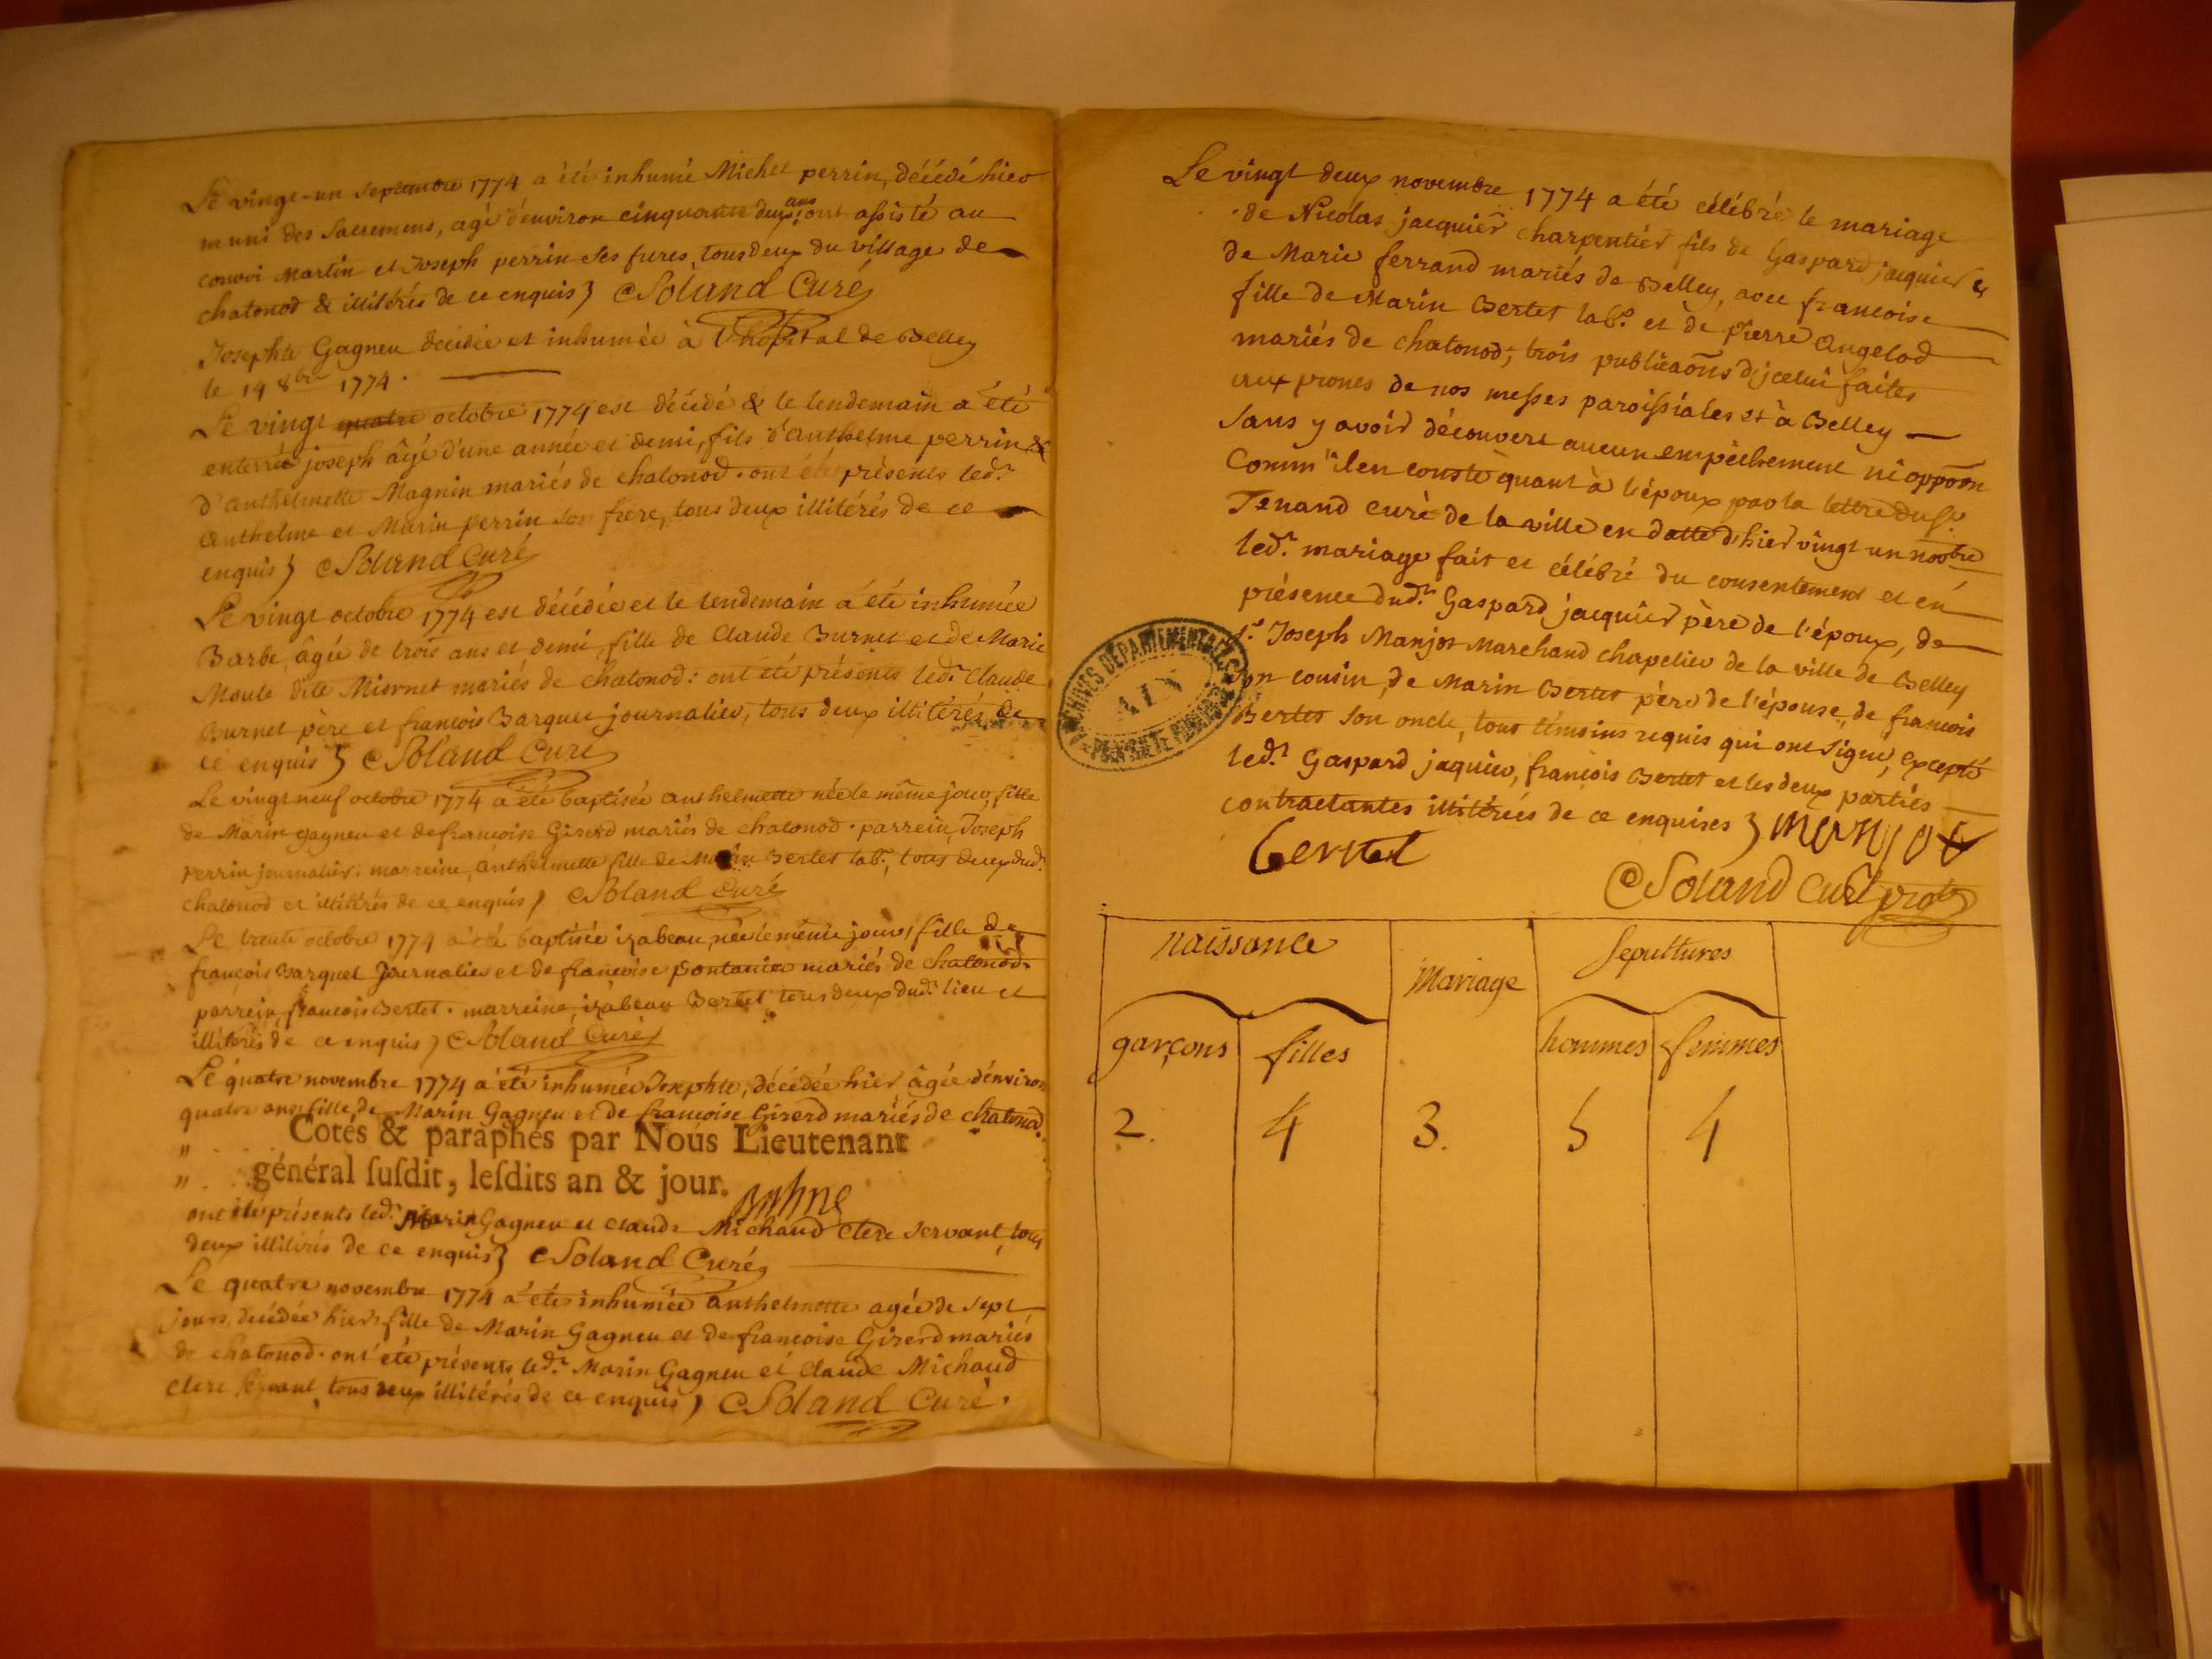 Le vingt-un septembre 1774 a été inhumé Michel perrin, décédé hier
muni des Sacremens, agé d'environ cinquante deux ans; ont assisté au
convoi Martin et Joseph perrin ses freres, tous deux du village de
chatonod & illitérés de ce enquis } Soland Curé
Josephte Gagneu décédée et inhumée à l'hopital de Belley
le 14 8bre 1774.
Le vingt quatre octobre 1774 est décédé & le lendemain a été
enterré joseph âgé d'une année et demi, fils d'anthelme perrin &
d'anthelmette Magnin mariés de chatonod. ont été présents led.t
anthelme et Marin perrin son frere, tous deux illitérés de ce
enquis } Soland Curé
Le vingt octobre 1774 est décédée et le lendemain a été inhumée
Barbe, agée de trois ans et demi, fille de Claude Burnet et de Marie
Moule dite Miornet mariés de chatonod: ont été présents led.t Claude
Burnet père et francois Barquet journalier, tous deux illitérés de
ce enquis } Soland Curé
Le vingt neuf octobre 1774 a été baptisée anthelmette née le même jour, fille
de Marin gagneu et de francoise Girerd mariés de chatonod. parrein, Joseph
perrin journalier. marreine, anthelmette fille de Marin Bertet lab.r, tous deux dud.t
chatonod et illitérés de ce enquis } Soland Curé
Le trente octobre 1774 a été baptisée izabeau, née le même jour, fille de
françois Barquet Journalier et de francoise pontanier mariés de chatonod.
parrein, francois Bertet. marreine, izabeau Bertet tous deux dud.t lieu et
illitérés de ce enquis } Soland Curé
Le quatre novembre 1774 a été inhumée Josephte, décédée hier, âgée d'environ
quatre ans, fille de Marin Gagneu et de francoise Girerd mariés de chatonod.
" Cotés & paraphés par Nous Lieutenant
" général ſuſdit, leſdits an & jour.
ont été présents led.t Marin Gagneu et Claude Michaud clerc servant, tous
deux illitérés de ce enquis } Soland Curé
Le quatre novembre 1774 a été inhumée anthelmette agée de sept
jours, décédée hier, fille de Marin Gagneu et de francoise Girerd mariés
de chatonod. ont été présents led.t Marin Gagneu et Claude Michaud
clerc servant, tous deux illitérés de ce enquis } Soland Curé.
Le vingt deux novembre 1774 a été célébré le mariage
de Nicolas jacquier charpentier fils de Gaspard jacquier &
de Marie ferrand mariés de Belley, avec francoise
fille de Marin Bertet lab.r et de pierre angelod
mariés de chatonod; trois publicaõns d'jcelui faites
aux prones de nos messes paroissiales et à Belley
sans y avoir découvert aucun empêchement ni oppõõn
Comm'il en conste quant à l'époux par la lettre du S.r
Tenand curé de la ville en datte d'hier vingt un novbre
led.t mariage fait et célébré du consentement et en
présence dud.t Gaspard jacquier père de l'époux, de
s.r Joseph Manjot Marchand chapelier de la ville de Belley
son cousin, de Marin Bertet père de l'épouse, de francois
Bertet son oncle, tous témoins requis qui ont signé, excepté
led.t Gaspard jaquier, francois Bertet et les deux parties
contractantes illitérées de ce enquises } Manjot
bertet
Soland Curé
ARCHIVES DEPARTEMENTALES
AIN
naissance
Mariage
Sepultures
garçons filles
hommes femmes
2. 4 3. 5 4